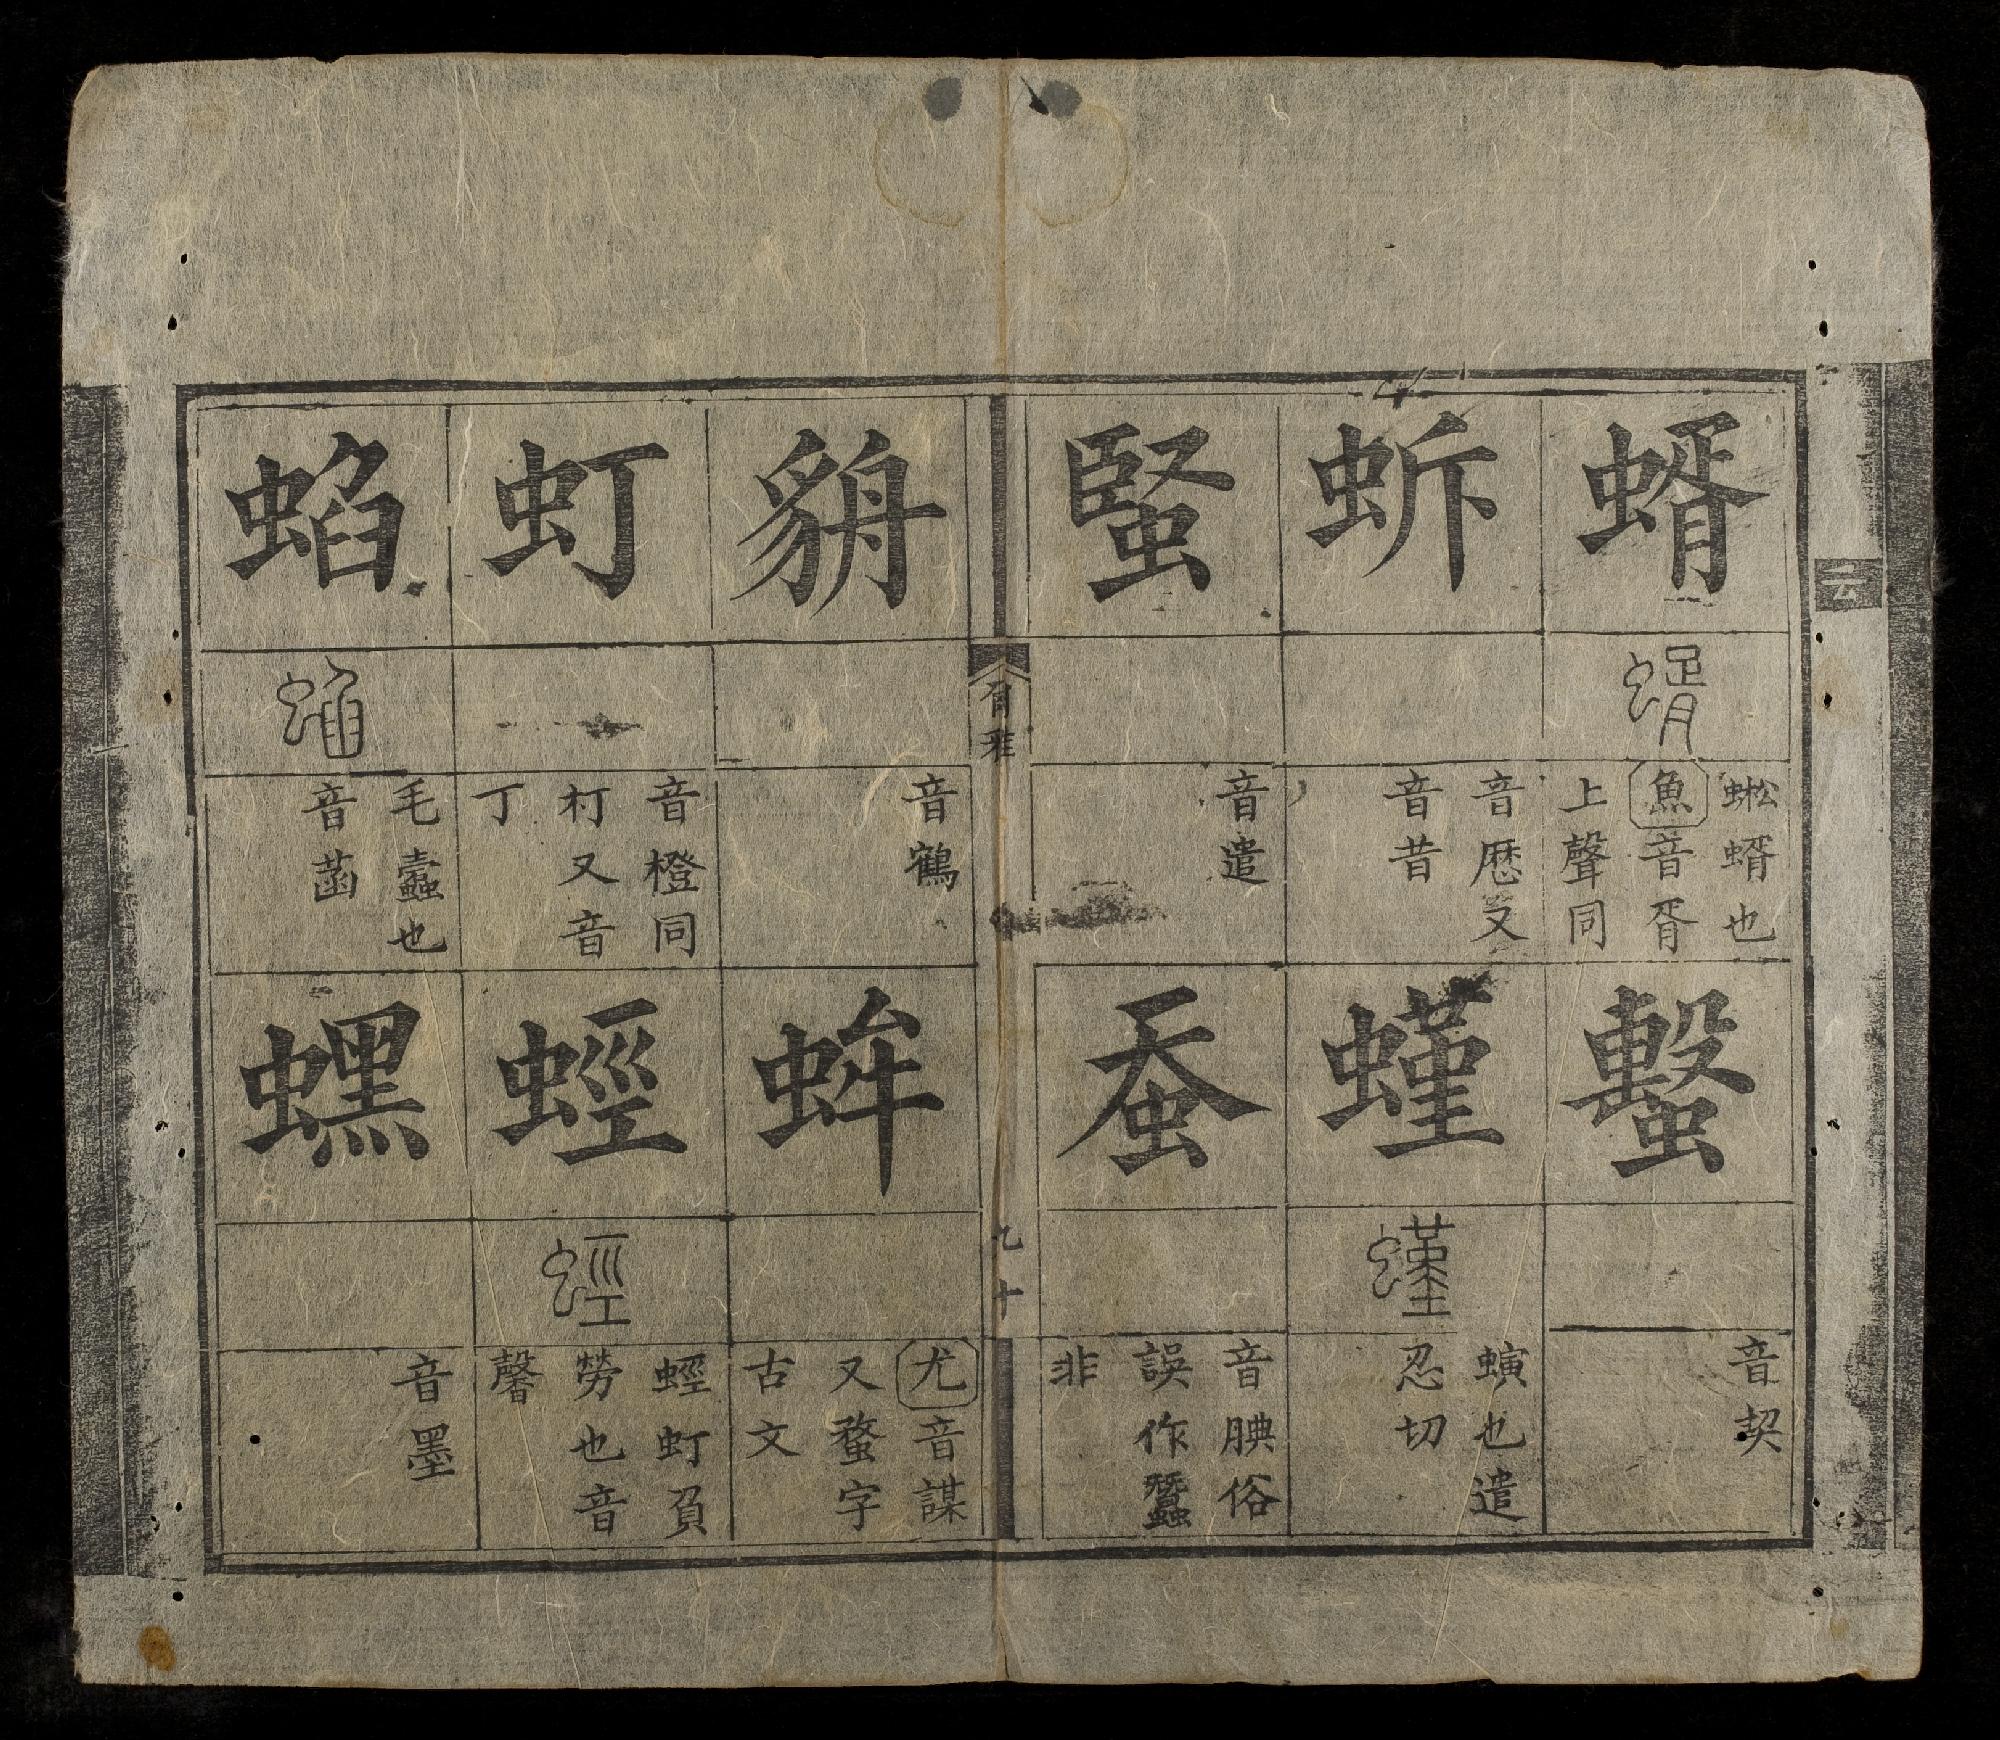 蝑
蜙蝑也
魚音胥
上聲同
蟿
音契
蚸
音厯又
音昔
螼
螼
螾也遣
忍切
䘒
音遣
蚕
音腆俗
誤作蠶
非
音鶴
蛑
尤音謀
又蝥字
古文
虰
音橙同
朾又音
丁
蛵
蛵
蛵虰負
勞也音
馨
蜭
蜭
毛蠹也
音菡
蟔
音墨
九十
云